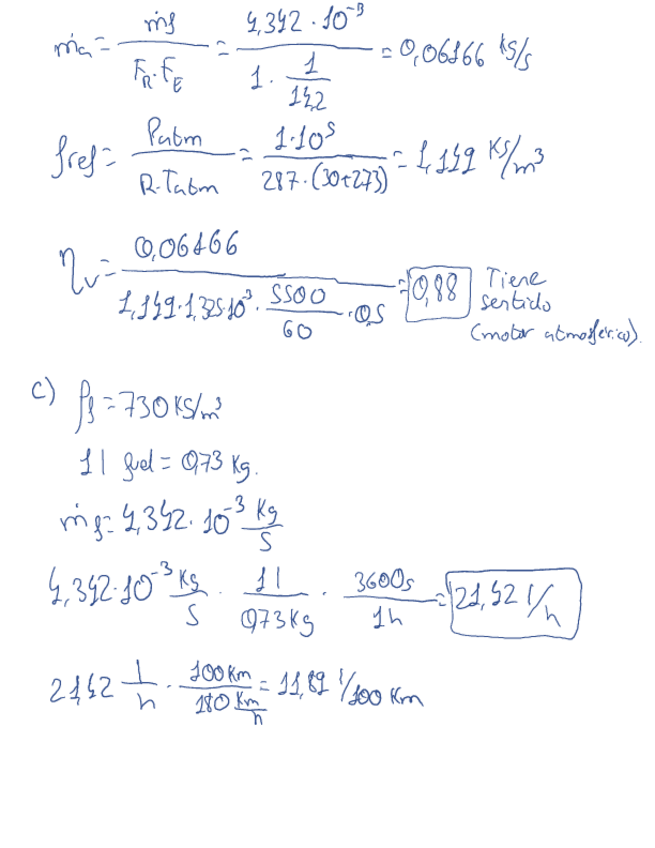 ṁa = ṁf / (F_R · F_E) = 4,342 · 10⁻³ / (1 · 1/14,2) = 0,06166 kg/s
ρref = Patm / (R·Tatm) = 1·10⁵ / (287·(30+273)) = 1,149 Kg/m³
ηv = 0,06166 / (1,149·1,325·10⁻³ · 5500/60 · 0,5) = 0,88 Tiene
sentido
(motor atmosférico).
c) ρf = 730 KG/m³
1 l fuel = 0,73 Kg.
ṁf = 4,342 · 10⁻³ Kg/s
4,342·10⁻³ Kg/s · 1 l/0,73 Kg · 3600s/1h = 21,42 l/h
21,42 l/h · 100 Km / 180 Km/h = 11,89 l/100 Km